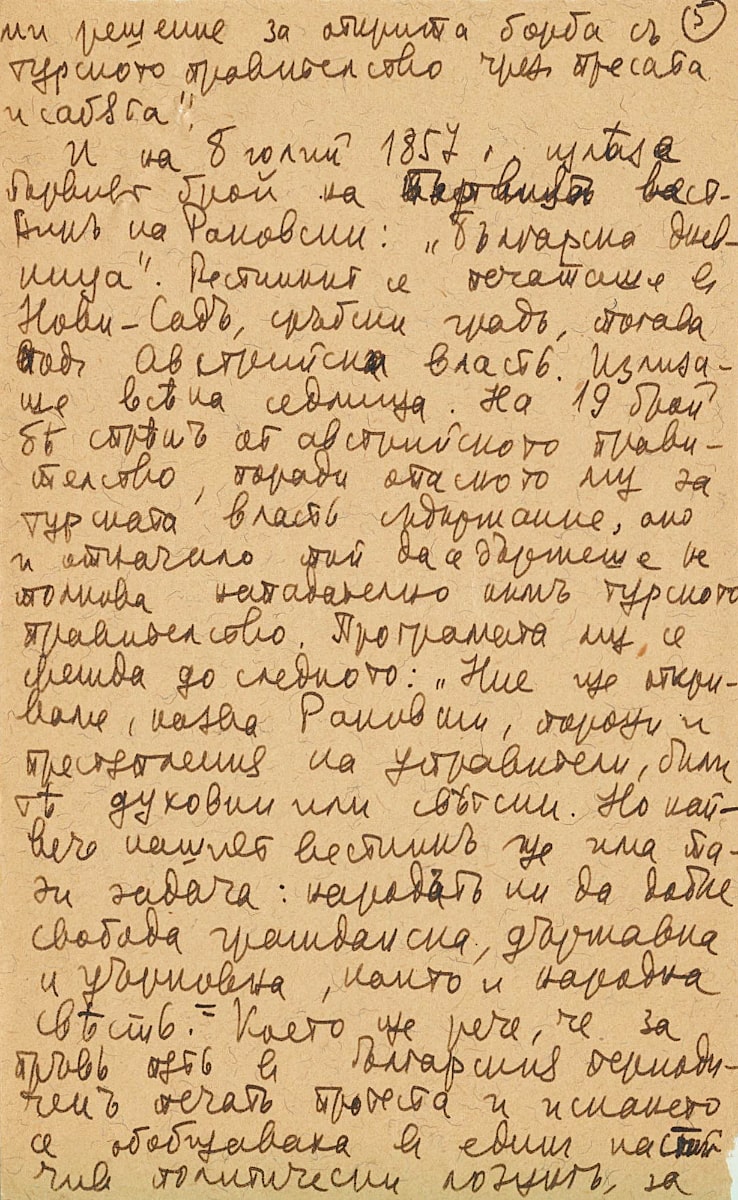 5
ми решение за открита борба съ
турското правителство чрез пресата
и сабята".
И на 8 юлий 1857 г. излѣзе
първият брой на вест-
никъ на Раковски: „Българска днев-
ница". Вестникът се печаташе в
Нови-Садъ, сръбски градъ, тогава
подъ Австрийска власть. Излиза-
ше всѣка седмица. На 19 брой
бѣ спрѣнъ от австрийското прави-
телство, поради опасното му за
турската власть съдържание, ако
и отначало той да се държеше не
толкова нападателно къмъ турското
правителство. Програмата му се
свежда до следното: „Ние ще откри-
ваме, казва Раковски, пороци и
престъпления на управители, били
тѣ духовни или свѣтски. Но най-
вече нашият вестникъ ще има та-
зи задача: народътъ ни да добие
свобода гражданска, държавна
и църковна, както и народна
свѣсть." Което ще рече, че за
пръвъ пѫть в българския периоди-
ченъ печать протеста и искането
се обобщаваха в един настой-
чив политически лозунгъ, за